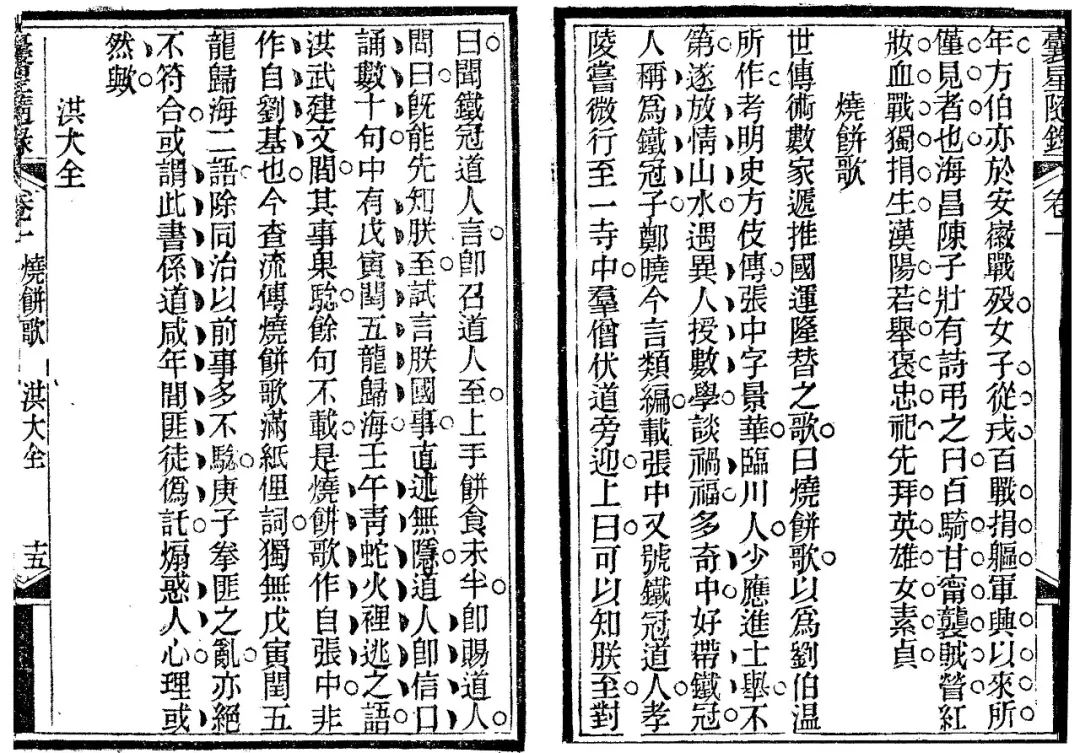 囊星隨錄 卷一
年方伯亦於安徽戰殁女子從戎百戰捐軀軍興以來所
僅見者也海昌陳子壯有詩弔之曰百騎甘甯襲賊營紅
妝血戰獨捐生漢陽若舉褒忠祀先拜英雄女素貞
燒餅歌
世傳術數家遞推國運隆替之歌曰燒餅歌以爲劉伯温
所作考明史方伎傳張中字景華臨川人少應進士舉不
第遂放情山水遇異人授數學談禍福多奇中好帶鐵冠
人稱爲鐵冠子鄭曉今言類編載張中又號鐵冠道人孝
陵嘗微行至一寺中羣僧伏道旁迎上曰可以知朕至對
曰聞鐵冠道人言卽召道人至上手餅食未半卽賜道人
問曰旣能先知朕至試言朕國事直述無隱道人卽信口
誦數十句中有戊寅閏五龍歸海壬午青蛇火裡逃之語
洪武建文間其事果驗餘句不載是燒餅歌作自張中非
作自劉基也今查流傳燒餅歌滿紙俚詞獨無戊寅閏五
龍歸海二語除同治以前事多不驗庚子拳匪之亂亦絕
不符合或謂此書係道咸年間匪徒僞託煽惑人心理或
然歟
洪大全
隨錄 卷一 燒餅歌 洪大全 十五